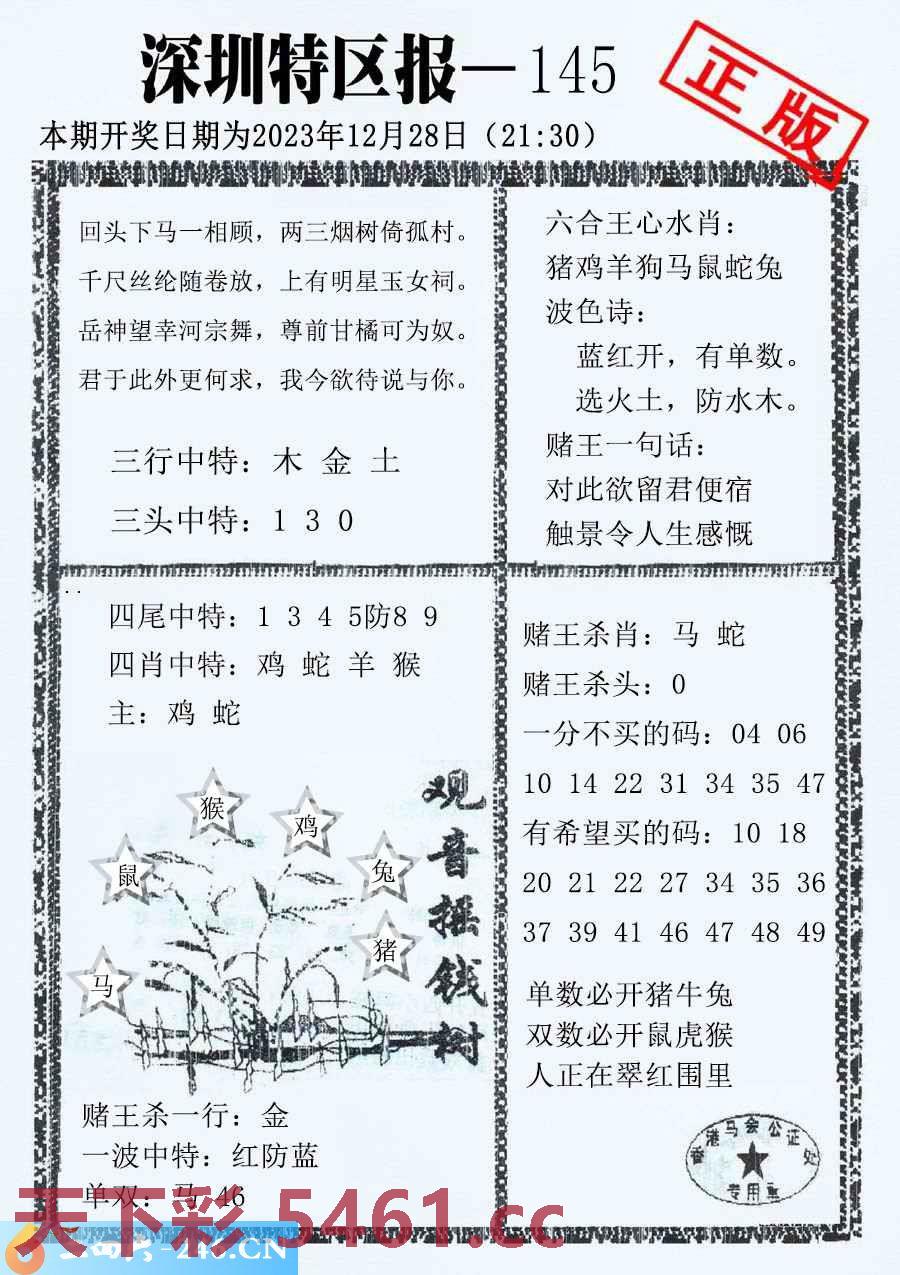 深圳特区报—145
正版
本期开奖日期为2023年12月28日（21:30）
回头下马一相顾，两三烟树倚孤村。
千尺丝纶随卷放，上有明星玉女祠。
岳神望幸河宗舞，尊前甘橘可为奴。
君于此外更何求，我今欲待说与你。
三行中特：木 金 土
三头中特：1 3 0
六合王心水肖：
猪鸡羊狗马鼠蛇兔
波色诗：
蓝红开，有单数。
选火土，防水木。
赌王一句话：
对此欲留君便宿
触景令人生感慨
四尾中特：1 3 4 5防8 9
四肖中特：鸡 蛇 羊 猴
主：鸡 蛇
猴
鸡
鼠
兔
猪
马
观音摇钱树
赌王杀一行：金
一波中特：红防蓝
单双：马 46
赌王杀肖：马 蛇
赌王杀头：0
一分不买的码：04 06
10 14 22 31 34 35 47
有希望买的码：10 18
20 21 22 27 34 35 36
37 39 41 46 47 48 49
单数必开猪牛兔
双数必开鼠虎猴
人正在翠红围里
香港马会公证处
专用章
天下彩 5461.cc